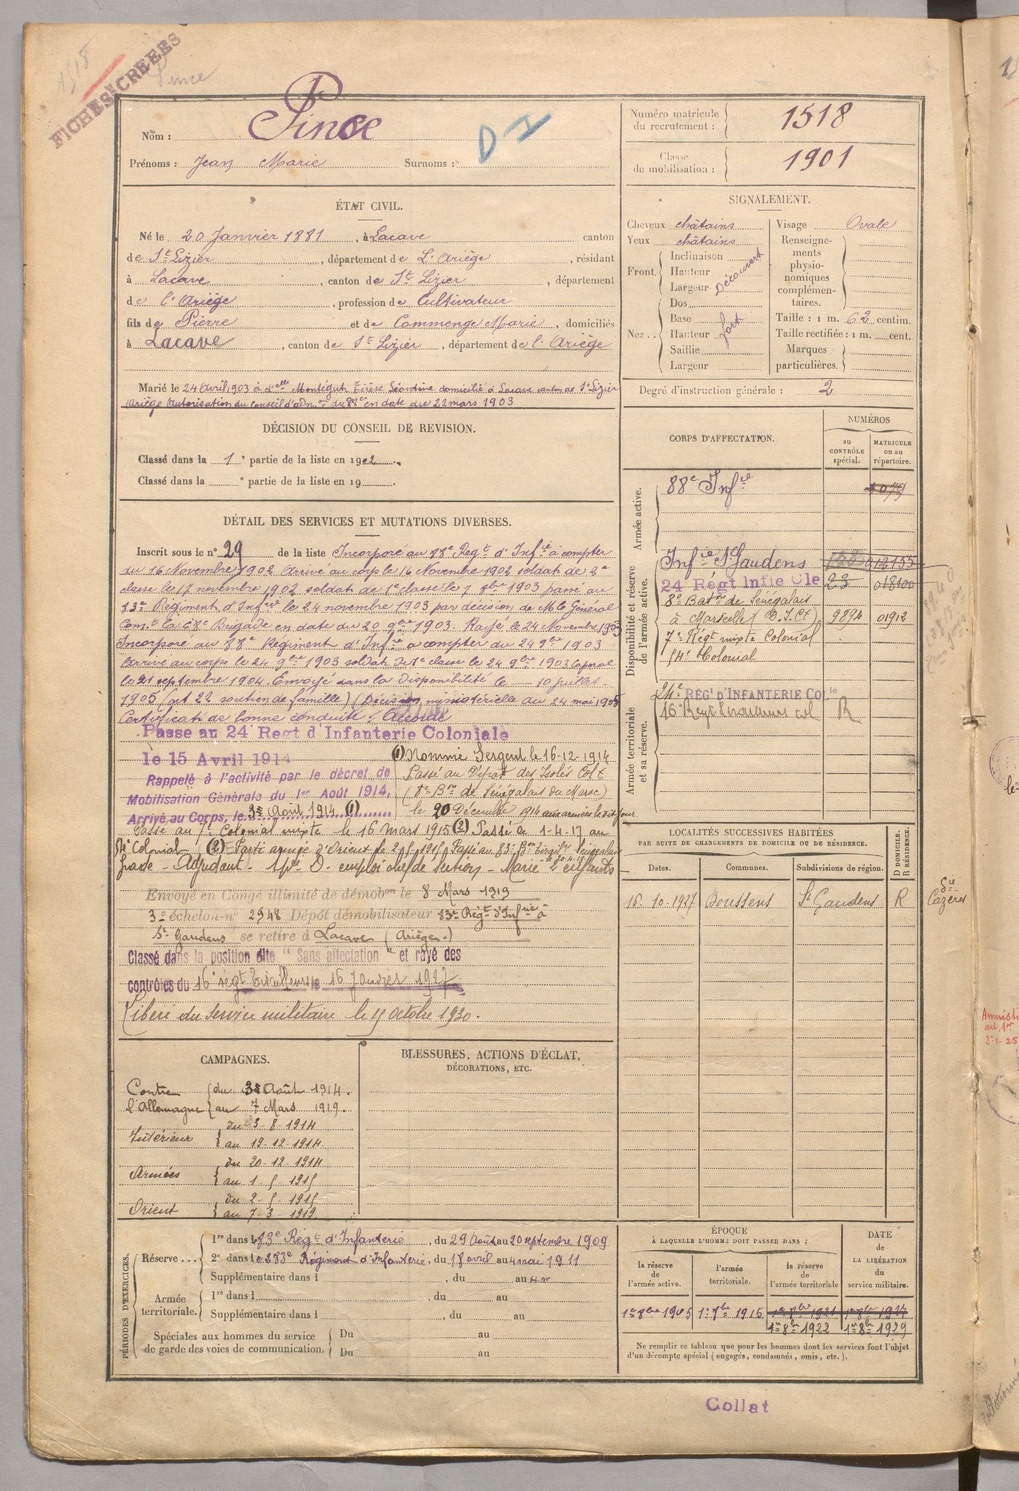 1518
Pince
FICHES CRÉÉES
Nom : Pince
D I
Prénoms : Jean Marie Surnoms :
Numéro matricule du recrutement : 1518
Classe de mobilisation : 1901
ÉTAT CIVIL.
Né le 20 Janvier 1881, à Lacave canton
de St Lizier, département de L'Ariège, résidant
à Lacave, canton de St Lizier, département
de l'Ariège, profession de Cultivateur
fils de Pierre et de Commenge Marie, domiciliés
à Lacave, canton de St Lizier, département de l'Ariège
Marié le 24 Avril 1903 à dlle Montégut Térèse Léontine domicilié à Lacave canton de St Lizier
Ariège Autorisation du Conseil d'adon du 88e en date du 22 mars 1903
SIGNALEMENT.
Cheveux châtains
Yeux châtains
Front. Inclinaison Hauteur Largeur Découvert
Nez.. Dos Base Hauteur fort Saillie Largeur
Visage Ovale
Renseignements physionomiques complémentaires.
Taille : 1 m. 62 centim.
Taille rectifiée : 1 m. cent.
Marques particulières.
Degré d'instruction générale : 2
DÉCISION DU CONSEIL DE REVISION.
Classé dans la 1e partie de la liste en 1902.
Classé dans la e partie de la liste en 19 .
DÉTAIL DES SERVICES ET MUTATIONS DIVERSES.
Inscrit sous le n° 29 de la liste Incorporé au 88e Regt d'Infie à compter
du 16 Novembre 1902 Arrivé au corps le 16 Novembre 1902 soldat de 2e
classe le 17 novembre 1902 soldat de 1e classe le 7 8bre 1903 passé au
83e Régiment d'Infrie le 24 novembre 1903 par décision de Mr le Général
Comt la 68e Brigade en date du 20 9bre 1903. Rayé le 24 Novembre 1903
Incorporé au 88e Régiment d'Infie à compter du 24 9bre 1903
Arrivé au corps le 24 9bre 1903 soldat de 1e classe le 24 9bre 1903 Caporal
le 21 septembre 1904. Envoyé dans la Disponibilité le 10 juillet
1905 (art 22 soutien de famille) (Décision ministérielle du 24 mai 1905
Certificat de bonne conduite : Accordé
Passé au 24e Regt d'Infanterie Coloniale
le 15 Avril 1914
Rappelé à l'activité par le décret de
Mobilisation Générale du 1er Août 1914.
Arrivé au Corps, le 3 Août 1914 (1)
(1) Nommé Sergent le 16-12-1914
Passé au Dépôt des Isolés Colx
(8e Bon de Sénégalais du Maroc)
le 20 Décembre 1914 aux armées le dit jour.
Passé au 7e Colonial mixte le 16 mars 1915 (2) Passé le 1-4-17 au
Colonial
Grade Adjudant emploi chef de section Marié 2 enfants
Envoyé en Congé illimité de démobon le 8 Mars 1919
3e échelon n° 2948 Dépôt démobilisateur 83e Régt d'Infrie à
St Gaudens se retire à Lacave (Ariège)
Classé dans la position dite "Sans affectation" et rayé des
contrôles du 16e régt Tirailleurs le 16 Janvier 1927
Libéré du service militaire le 15 octobre 1930.
CORPS D'AFFECTATION.
NUMÉROS
au CONTRÔLE spécial.
MATRICULE ou au répertoire.
Armée active.
88e Infie
Disponibilité et réserve de l'armée active.
Infie St Gaudens
24e Régt Infie Cle 23 018100
8e Baton de Sénégalais
à Marseille (D.I.Cx) 9894 01912
7e Régt mixte Colonial
54e Colonial
Armée territoriale et sa réserve.
24e RÉGt D'INFANTERIE COLle
16e Régt tirailleurs col R
LOCALITÉS SUCCESSIVES HABITÉES
PAR SUITE DE CHANGEMENTS DE DOMICILE OU DE RÉSIDENCE.
Dates. Communes. Subdivisions de région. D DOMICILE. R RÉSIDENCE.
15.10.1927 Boussens St Gaudens R
Cie Cazères
CAMPAGNES.
Contre l'Allemagne { du 3 Août 1914. au 7 Mars 1919.
Intérieur { du 3-8-1914 au 19-12-1914
Armées { du 20-12-1914 au 1-5-1915
Orient { du 2-5-1915 au 7-3-1919
BLESSURES, ACTIONS D'ÉCLAT,
DÉCORATIONS, ETC.
PÉRIODES D'EXERCICES.
Réserve... 1re dans le 83e Régt d'Infanterie, du 29 Août au 20 septembre 1909
2e dans le 283e Régiment d'Infanterie, du 18 avril au 4 mai 1911
Supplémentaire dans l , du au
Armée territoriale. 1re dans l , du au
Supplémentaire dans l , du au
Spéciales aux hommes du service de garde des voies de communication. Du au
Du au
ÉPOQUE
À LAQUELLE L'HOMME DOIT PASSER DANS :
la réserve de l'armée active. l'armée territoriale. la réserve de l'armée territoriale
DATE de LA LIBÉRATION du service militaire.
1er 8bre 1905 1er 8bre 1915
1er 8bre 1922 1er 8bre 1929
Ne remplir ce tableau que pour les hommes dont les services font l'objet
d'un décompte spécial (engagés, condamnés, omis, etc.).
Collat